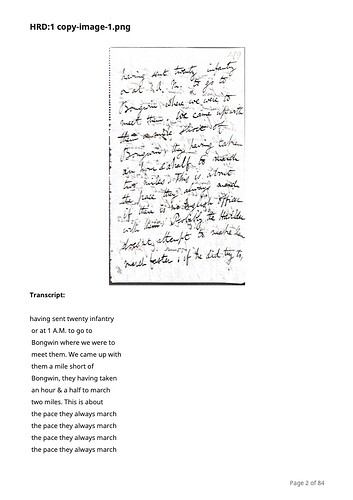 HRD:1 copy-image-1.png
having sent twenty infantry
or at 1 A.M. to go to
Bongwin where we were to
meet them. We came up with
them a mile short of
Bongwin, they having taken
an hour & a half to march
two miles. This is about
the pace they always march
if there is no English officer
with them. Probably the Havildar
doesn't attempt to make them
march faster; if he did try to,
Transcript:
having sent twenty infantry
or at 1 A.M. to go to
Bongwin where we were to
meet them. We came up with
them a mile short of
Bongwin, they having taken
an hour & a half to march
two miles. This is about
the pace they always march
the pace they always march
the pace they always march
the pace they always march
Page 2 of 84